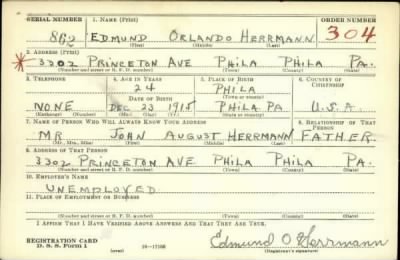 SERIAL NUMBER 1. NAME (Print) ORDER NUMBER
862 EDMUND ORLANDO HERRMANN 304
(First) (Middle) (Last)
2. ADDRESS (Print)
* 3302 PRINCETON AVE PHILA PHILA PA.
(Number and street or R. F. D. number) (Town) (County) (State)
3. TELEPHONE 4. AGE IN YEARS 5. PLACE OF BIRTH 6. COUNTRY OF CITIZENSHIP
24 PHILA
DATE OF BIRTH
NONE DEC 23 1915 PHILA PA U.S.A
(Exchange) (Number) (Mo.) (Day) (Yr.) (State or country)
7. NAME OF PERSON WHO WILL ALWAYS KNOW YOUR ADDRESS 8. RELATIONSHIP OF THAT PERSON
MR JOHN AUGUST HERRMANN FATHER
(Mr., Mrs., Miss) (First) (Middle) (Last)
9. ADDRESS OF THAT PERSON
3302 PRINCETON AVE PHILA PHILA PA.
(Number and street or R. F. D. number) (Town) (County) (State)
10. EMPLOYER'S NAME
UNEMPLOYED
11. PLACE OF EMPLOYMENT OR BUSINESS
(Number and street or R. F. D. number) (Town) (County) (State)
I AFFIRM THAT I HAVE VERIFIED ABOVE ANSWERS AND THAT THEY ARE TRUE.
REGISTRATION CARD
D. S. S. Form 1 Edmund O Herrmann
(Registrant's signature)